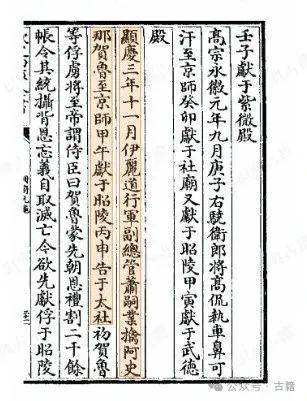 壬子獻于紫微殿
髙宗永徽元年九月庚子右驍衛郎將髙侃執車鼻可
汗至京師癸卯獻于社廟又獻于昭陵甲寅獻于武德
殿
顯慶三年十一月伊麗道行軍副總管蕭嗣業擒阿史
那賀魯至京師甲午獻于昭陵丙申告于太社初賀魯
等俘虜將至帝謂侍臣曰賀魯蒙先朝恩禮割二千餘
帳令其統攝背恩忘義自取滅亡今欲先獻俘于昭陵
公众号·古籍